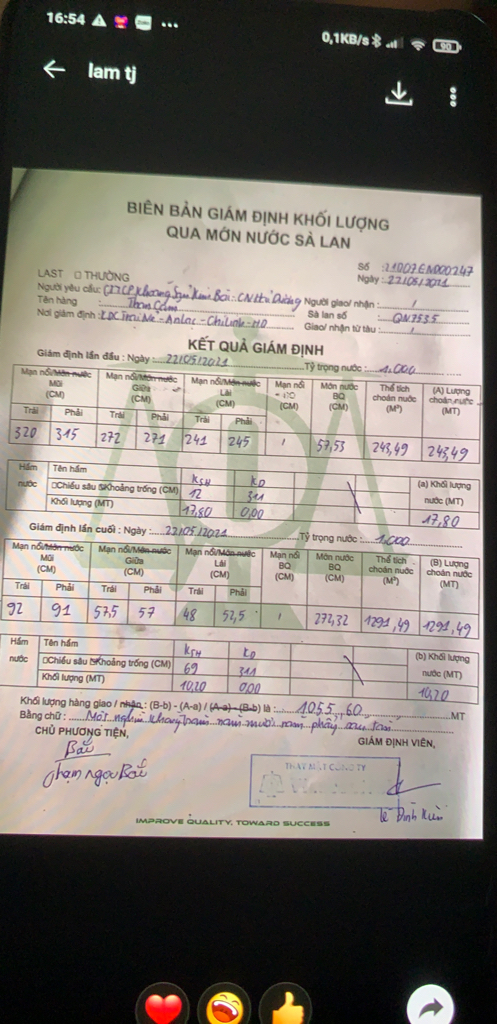 16:54
0,1KB/s
90
lam tj
BIÊN BẢN GIÁM ĐỊNH KHỐI LƯỢNG
QUA MỚN NƯỚC SÀ LAN
Số :21007EN000247
LAST □ THƯỜNG
Ngày :22/05/2021
Người yêu cầu: CN Hải Dương Người giao/ nhận : /
Tên hàng : Than Cám Sà lan số : QN7535
Nơi giám định : - Chí Linh - HD Giao/ nhận từ tàu : /
KẾT QUẢ GIÁM ĐỊNH
Giám định lần đầu : Ngày : 22/05/2021 Tỷ trọng nước : 1.000
Mạn nổi/Món nước Mũi (CM) Mạn nổi/Món nước Giữa (CM) Mạn nổi/Món nước Lái (CM) Mạn nổi (CM) Món nước BQ (CM) Thể tích choán nước (M³) (A) Lượng choán nước (MT)
Trái Phải Trái Phải Trái Phải
320 315 272 271 241 245 / 57,53 243,49 243,49
Hầm nước Tên hầm KSH KD (a) Khối lượng nước (MT)
□Chiều sâu Khoảng trống (CM) 12 311
Khối lượng (MT) 17,80 0,00 17,80
Giám định lần cuối : Ngày : 22/05/2021 Tỷ trọng nước : 1.000
Mạn nổi/Món nước Mũi (CM) Mạn nổi/Món nước Giữa (CM) Mạn nổi/Món nước Lái (CM) Mạn nổi BQ (CM) Món nước BQ (CM) Thể tích choán nước (M³) (B) Lượng choán nước (MT)
Trái Phải Trái Phải Trái Phải
92 91 57,5 57 48 52,5 / 272,32 1291,49 1291,49
Hầm nước Tên hầm KSH KD (b) Khối lượng nước (MT)
□Chiều sâu Khoảng trống (CM) 69 311
Khối lượng (MT) 10,20 0,00 10,20
Khối lượng hàng giao / nhận : (B-b) - (A-a) / (A-a) - (B-b) là : 1055,60 MT
Bằng chữ : Một nghìn không trăm năm mươi năm phẩy sáu tấn
CHỦ PHƯƠNG TIỆN, GIÁM ĐỊNH VIÊN,
Bắc
Phạm Ngọc Bắc
THAY MẶT CÔNG TY
Lê Đình
IMPROVE QUALITY, TOWARD SUCCESS